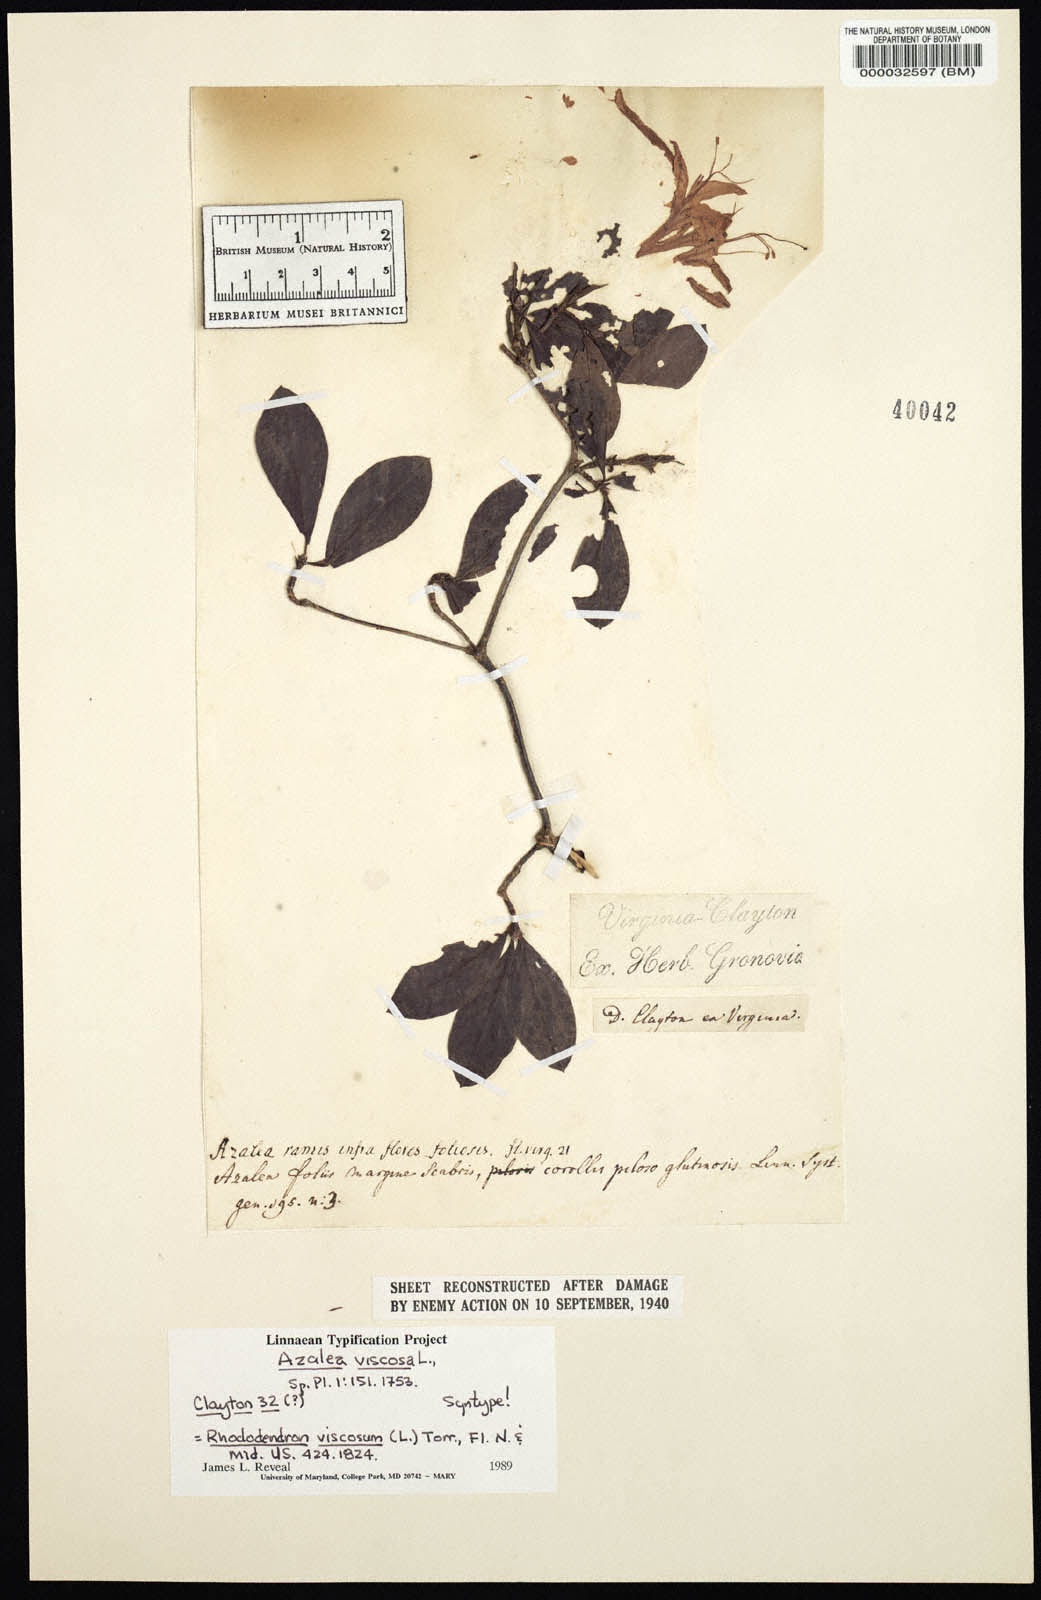 THE NATURAL HISTORY MUSEUM, LONDON
DEPARTMENT OF BOTANY
000032597 (BM)
1 2
BRITISH MUSEUM (NATURAL HISTORY)
1 2 3 4 5
HERBARIUM MUSEI BRITANNICI
40042
Virginia-Clayton
Ex. Herb. Gronovia
D. Clayton ex Virginia.
Azalea ramis infra flores foliosis. fl. virg. 21
Azalea foliis margine scabris, pilosis corollis piloso glutinosis. Linn. Syst.
gen. 195. n: 3.
SHEET RECONSTRUCTED AFTER DAMAGE
BY ENEMY ACTION ON 10 SEPTEMBER, 1940
Linnaean Typification Project
Azalea viscosa L.,
Sp. Pl. 1:151. 1753.
Clayton 32 (?) Syntype!
= Rhododendron viscosum (L.) Torr., Fl. N. &
Mid. US. 424. 1824.
James L. Reveal 1989
University of Maryland, College Park, MD 20742 – MARY